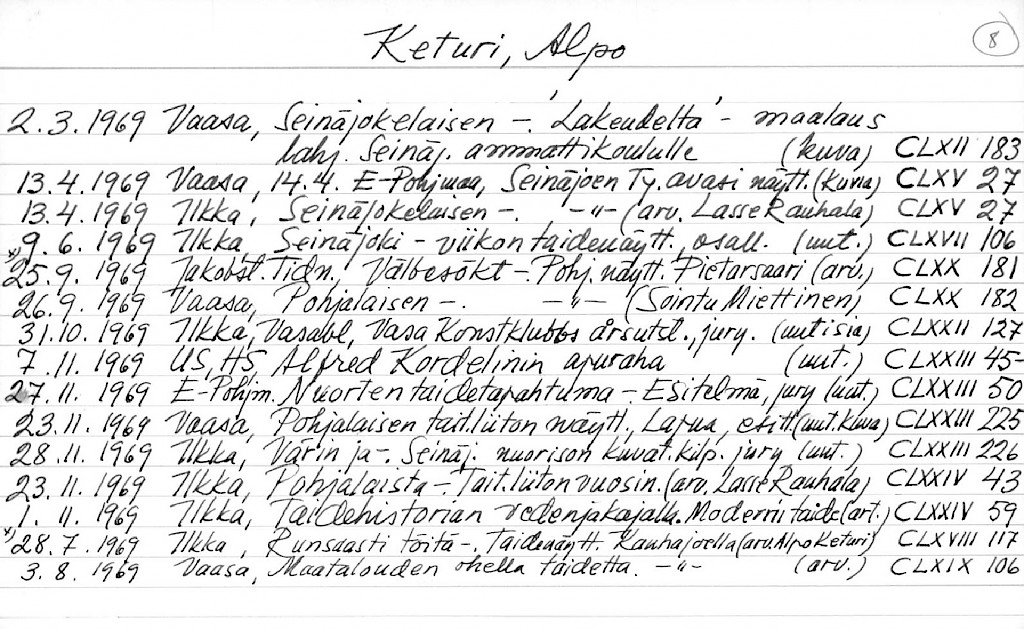 Keturi, Alpo
8
2.3.1969 Vaasa, Seinäjokelaisen -. 'Lakeudelta' - maalaus
lahj. Seinäj. ammattikoululle (kuva) CLXII 183
13.4.1969 Vaasa, 14.4. E-Pohjmaa, Seinäjoen Ty. avasi näytt. (kuva) CLXV 27
13.4.1969 Ilkka, Seinäjokelaisen -. -"- (arv. Lasse Rauhala) CLXV 27
9.6.1969 Ilkka, Seinäjoki-viikon taidenäytt., osall. (uut.) CLXVII 106
25.9.1969 Jakobst. Tidn., Välbesökt -. Pohj. näytt. Pietarsaari (arv.) CLXX 181
26.9.1969 Vaasa, Pohjalaisen -. -"- (Sointu Miettinen) CLXX 182
31.10.1969 Ilkka, Vasabl, Vasa Konstklubbs årsutst., jury. (uutisia) CLXXII 127
7.11.1969 US, HS, Alfred Kordelinin apuraha (uut.) CLXXIII 45
27.11.1969 E-Pohjm. Nuorten taidetapahtuma -. Esitelmä, jury (uut.) CLXXIII 50
23.11.1969 Vaasa, Pohjalaisen tait.liiton näytt., Lapua, esitt. (uut. kuva) CLXXIII 225
28.11.1969 Ilkka, Värin ja -. Seinäj. nuorison kuvat. kilp. jury (uut.) CLXXIII 226
23.11.1969 Ilkka, Pohjalaista -. Tait.liiton vuosin. (arv. Lasse Rauhala) CLXXIV 43
1.11.1969 Ilkka, Taidehistorian vedenjakajalla. Moderni taide (art.) CLXXIV 59
28.7.1969 Ilkka, Runsaasti töitä -. Taidenäytt. Kauhajoella (arv. Alpo Keturi) CLXVIII 117
3.8.1969 Vaasa, Maatalouden ohella taidetta. -"- (arv.) CLXIX 106